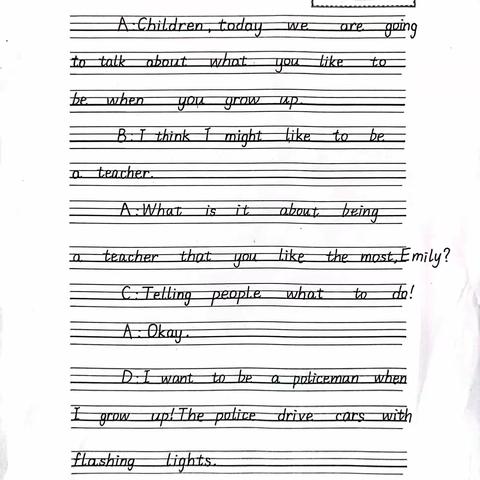 A:Children, today we are going
to talk about what you like to
be when you grow up.
B:I think I might like to be
a teacher.
A:What is it about being
a teacher that you like the most,Emily?
C:Telling people what to do!
A:Okay.
D:I want to be a policeman when
I grow up!The police drive cars with
flashing lights.